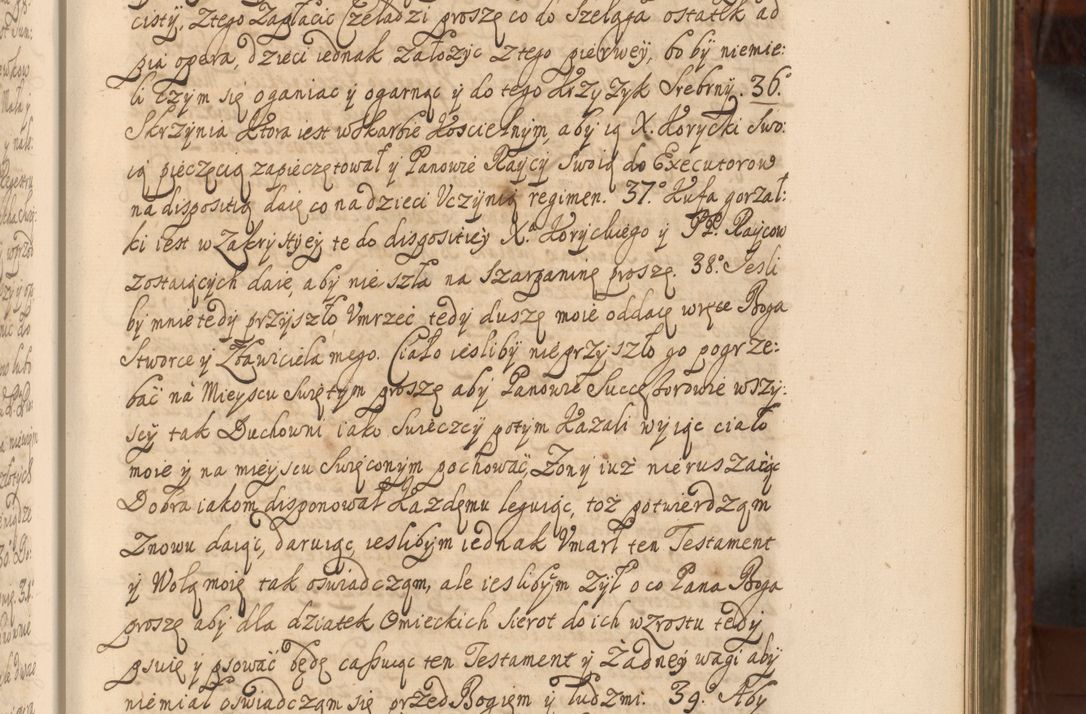 cisty, Ztego Zapłacic Czeladzi proszę co do Szeląga ostatek ad
pia opera, dzieci iednak załozyc z tego pierwey, bo by niemie:
li czym się oganiac y ogarnąc y do tego Krzyzyk Srebrny. 36.
Skrzynia Ktora iest w Skarbie Kościelnym, aby ią X. Korycki Swo:
ią pieczęcią zapieczętował y Panowie Raycy Swoią do Executorow
na dispositią daię co na dzieci Uczynią regimen. 37.º Kufa gorzał:
ki iest w Zakrystyey te do dispositiey X.ª Koryckiego y PP. Raycow
zostaiących daię, aby nie szła na Szarpaninę proszę. 38.º Jesli
by mnie tedy przyszło Umrzec tedy duszę moię oddaię w ręce Boga
Stworce y Zbawiciela mego. Ciało iesliby nieprzyszło go pogrze:
bać na Mieyscu Swiętym proszę aby Panowie Successorowie wszy:
scy tak Duchowni iako Swieczcy potym Kazali wyiąc ciało
moie y na mieyscu Swięconym pochować, Zony iuż nieruszaiąc
Dobra iakom disponował Kazdemu leguiąc, toż potwierdzam
Znowu daiąc, daruiąc, ieslibym iednak Umarł ten Testament
y Wolą moię tak oswiadczam, ale ieslibym Zył o co Pana Boga
proszę aby dla dziatek Omieckich sierot do ich wzrostu tedy
psuię y psować będę cassuiąc ten Testament y Żadney wagi aby
niemiał oswiadczam się przed Bogiem y ludzmi. 39.º Aby